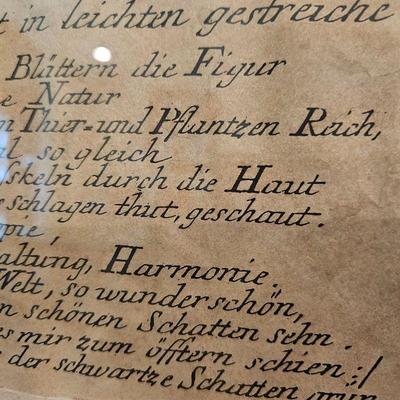 t in leichten gestreiche
Blättern die Figur
e Natur
n Thier=und Pflantzen Reich,
al so gleich
skeln durch die Haut
schlagen thut, geschaut.
pie,
altung, Harmonie.
Welt, so wunderschön,
n schönen Schatten sehn.
es mir zum öfftern schien ;/
der schwartze Schatten grün